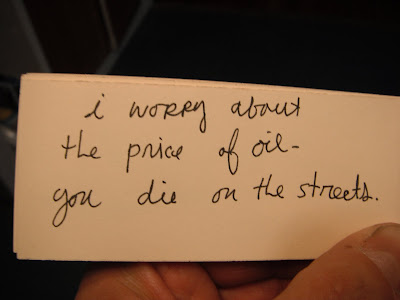 i worry about
the price of oil-
you die on the streets.